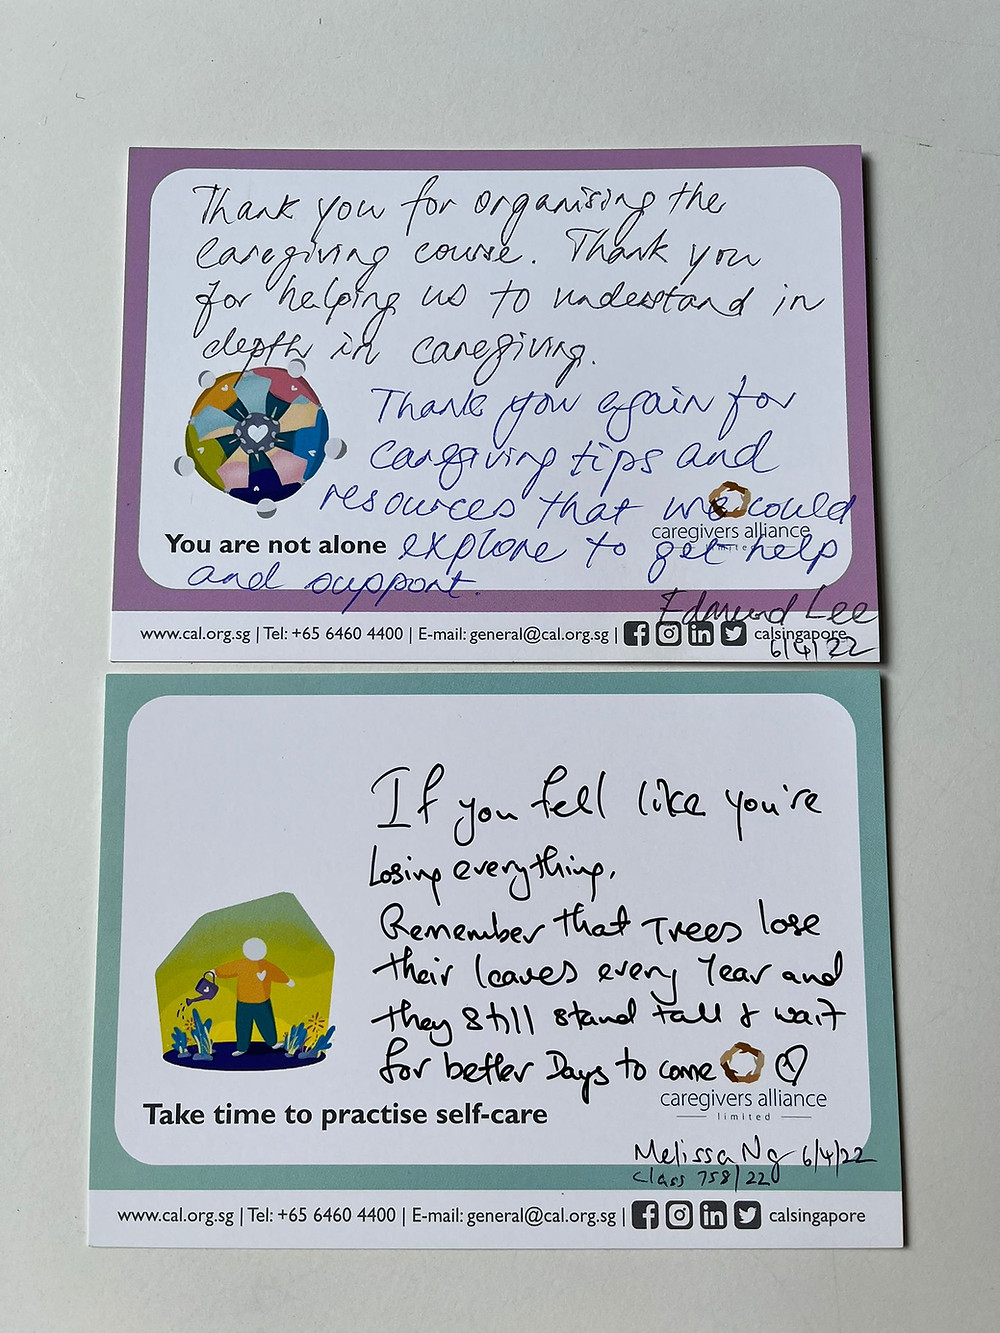 Thank you for organising the
caregiving course. Thank you
for helping us to understand in
depth in caregiving.
Thank you again for
caregiving tips and
resources that we could
caregivers alliance
limited
You are not alone explore to get help
and support.
Edmund Lee
www.cal.org.sg | Tel: +65 6460 4400 | E-mail: general@cal.org.sg | calsingapore
6/4/22
If you fell like you're
Losing everything,
Remember that Trees lose
their leaves every Year and
they still stand tall & wait
for better Days to come
caregivers alliance
limited
Take time to practise self-care
Melissa Ng 6/4/22
Class 758/22
www.cal.org.sg | Tel: +65 6460 4400 | E-mail: general@cal.org.sg | calsingapore